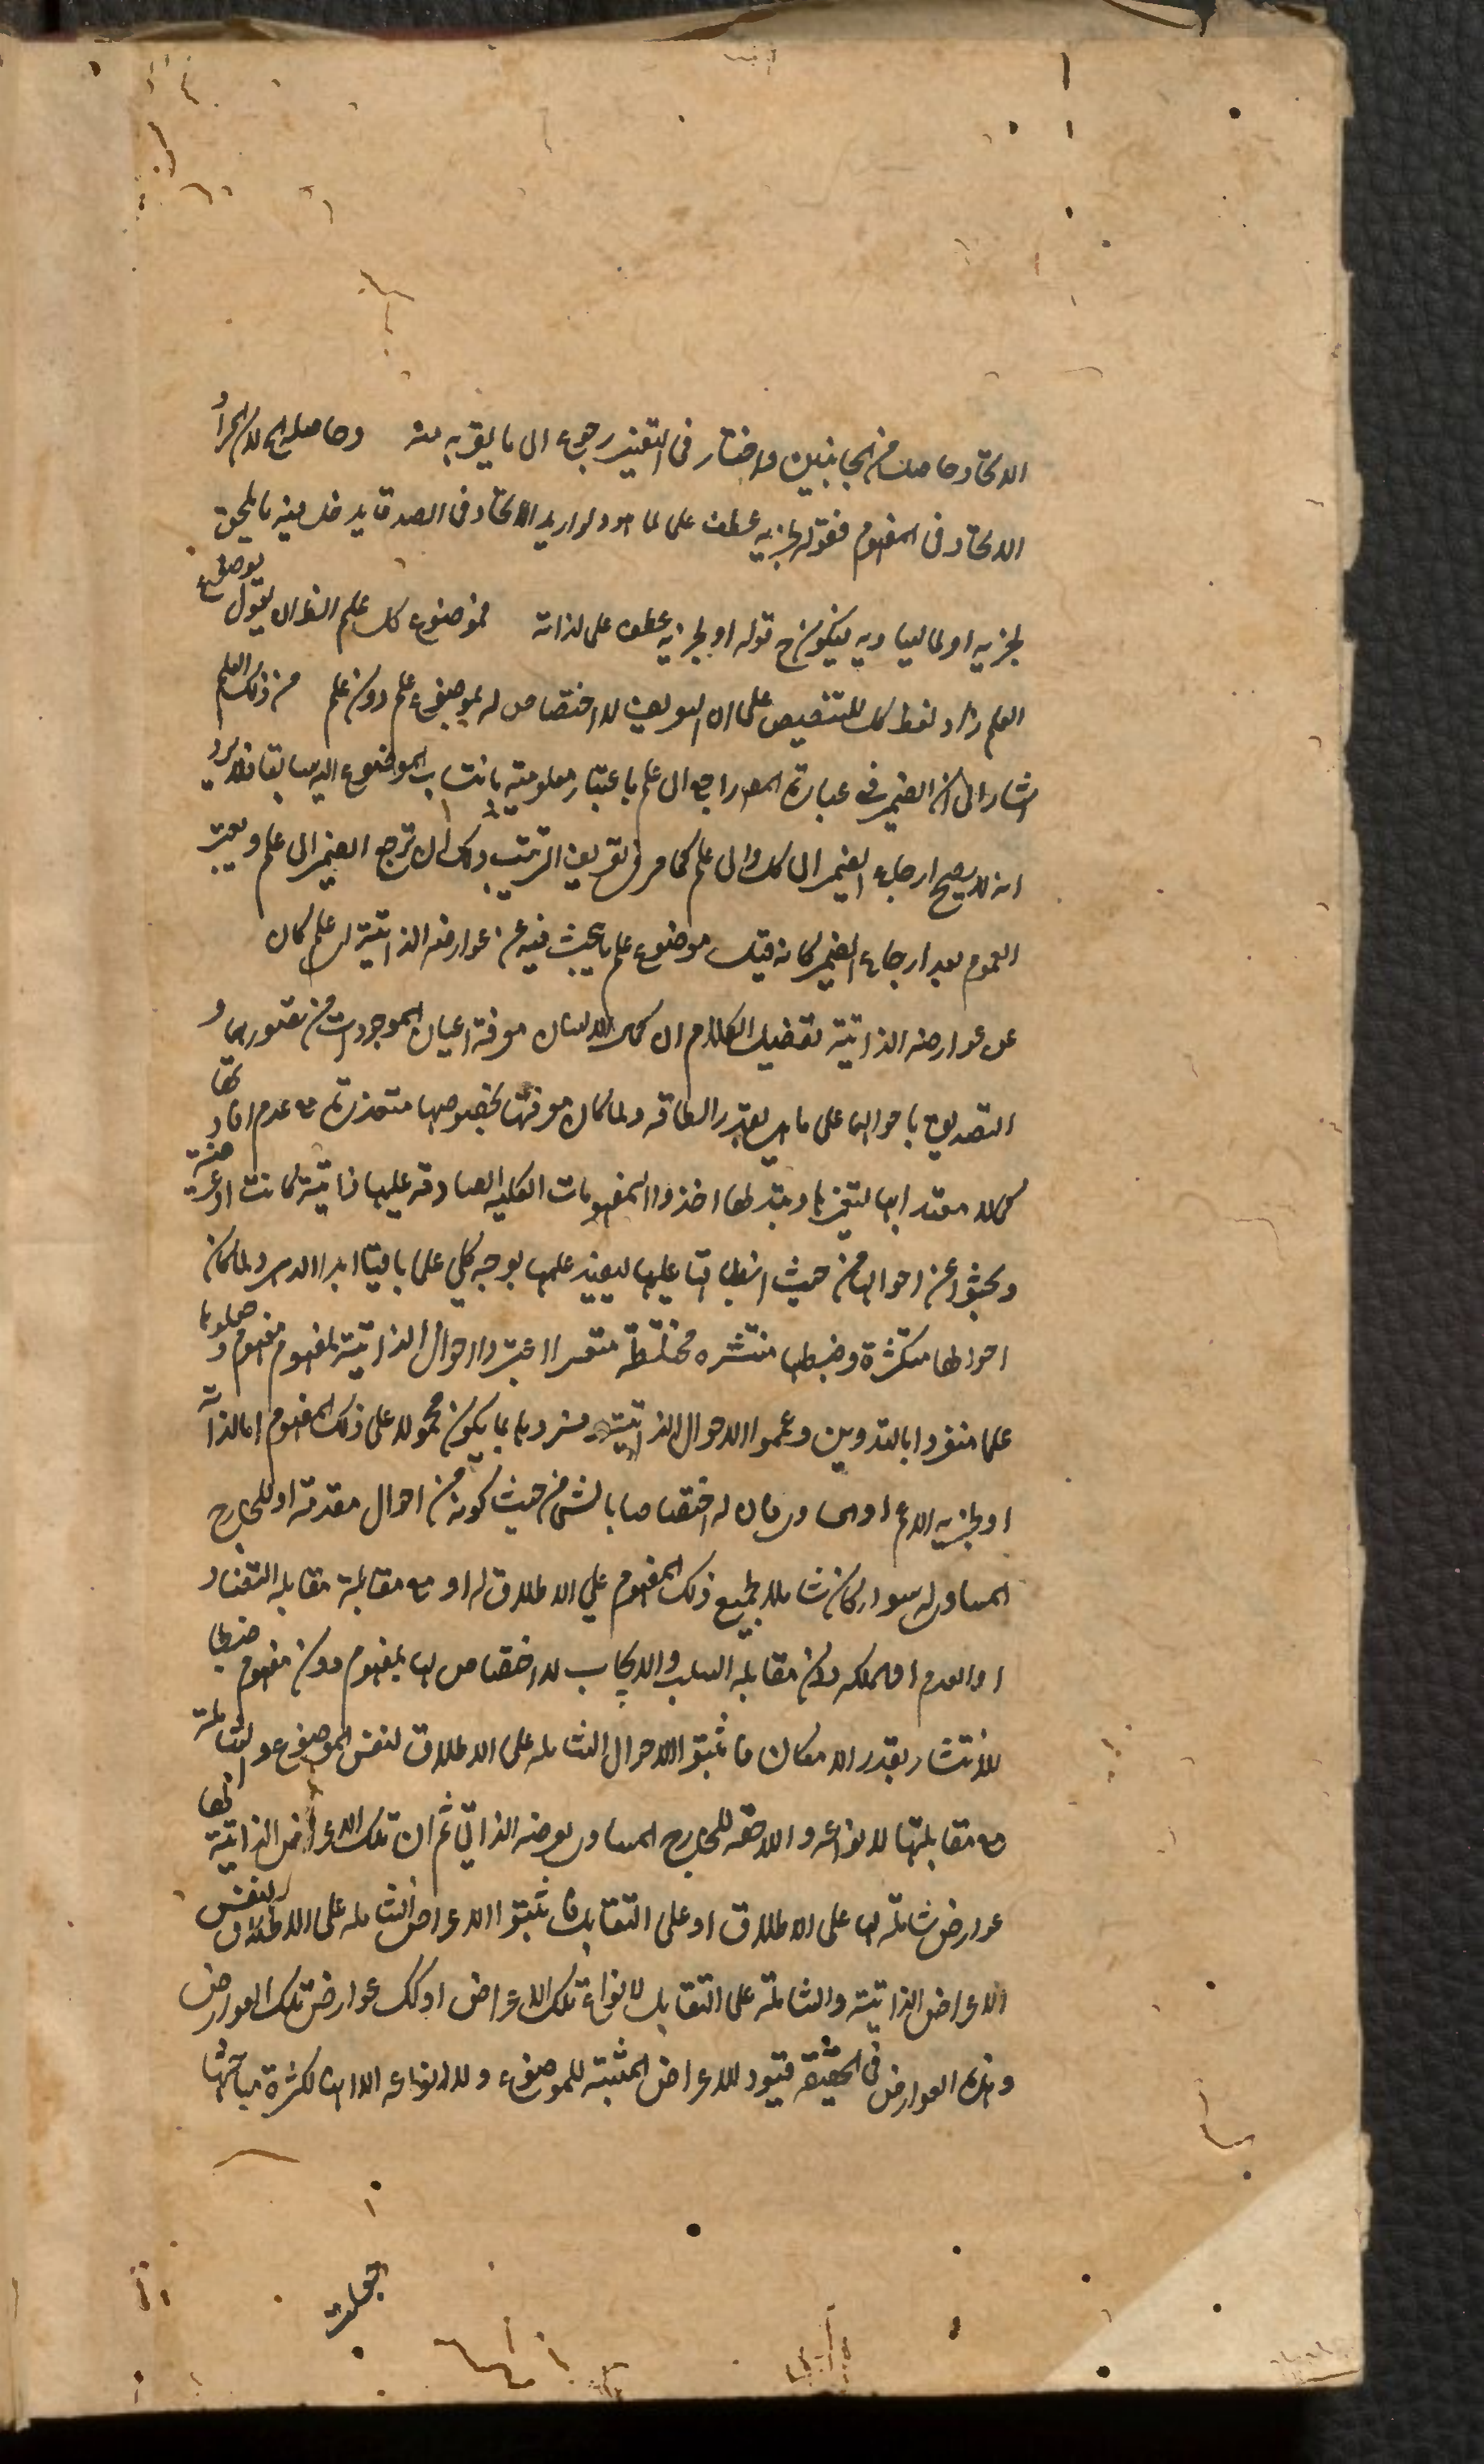 الاتحاد حاصل من الجانبين واختار في التفسير رجوع الى ما يقربه منه وحاصله ان المراد
الاتحاد في المفهوم فقوله لجزئه عطف على لما هو ولو اريد الاتحاد في الصدق يدخل فيه ما يلحق
لجزئه او لما يساويه فيكون ح قوله او لجزئه عطف على لذاته فموضوع كل علم الظ ان يقول موضوع
العلم وزاد لفظ كل للتنصيص على ان التعريف لا اختصاص له بموضوع علم دون علم من ذلك العلم
اشار الى ان الضمير في عبارة المص راجع الى علم باعتبار معلوميته بانتساب الموضوع اليه سابقا فلا يرد
انه لا يصح ارجاع الضمير الى كل والى علم كما مر في تعريف الترتيب ولك ان ترجع الضمير الى علم ويعتبر
العموم بعد ارجاع الضمير كانه قيل موضوع علم ما يبحث فيه عن عوارضه الذاتية اي علم كان
عن عوارضه الذاتية تفصيل الكلام ان كمال الانسان معرفة اعيان الموجودات من تصورها و
التصديق باحوالها على ما هي بقدر الطاقة ولما كان معرفتها بخصوصها متعذرة مع عدم افادتها
كمالا معتدا بها لتغيرها وتبدلها اخذوا المفهومات الكلية الصادقة عليها ذاتية كانت او عرضية
وبحثوا عن احوالها من حيث انطباقها عليها ليفيد علمها بوجه كلي علما باقيا ابدا الدهر ولما كان
احوالها متكثرة وضبطها منتشرة مختلطة متعسرا اعتبروا الاحوال الذاتية لمفهوم مفهوم وجعلوها
علما منفردا بالتدوين وعمموا الاحوال الذاتية وفسروها بما يكون محمولا على ذلك المفهوم اما لذاته
او لجزئه الاعم او المساوي فان له اختصاصا بالشئ من حيث كونه من احوال مقومه او للخارج
المساوي له سواء كان شاملا لجميع ذلك المفهوم على الاطلاق له او مع مقابله مقابلة التضاد
او العدم والملكة دون مقابلة السلب والايجاب لا اختصاص لها بمفهوم دون مفهوم ضبطا
للانتشار بقدر الامكان فاثبتوا الاحوال الشاملة على الاطلاق لنفس الموضوع والشاملة
مع مقابلتها لانواعه واللاحقة للخارج المساوي لعرضه الذاتي ثم ان تلك الاعراض الذاتية لها
عوارض شاملة لها على الاطلاق او على التقابل فاثبتوا الاعراض الشاملة على الاطلاق لنفس
الاعراض الذاتية والشاملة على التقابل لانواع تلك الاعراض وكذلك عوارض تلك العوارض
وهذه العوارض في الحقيقة قيود للاعراض المثبتة للموضوع ولانواعه الا انها لكثرة مباحثها
جعلت